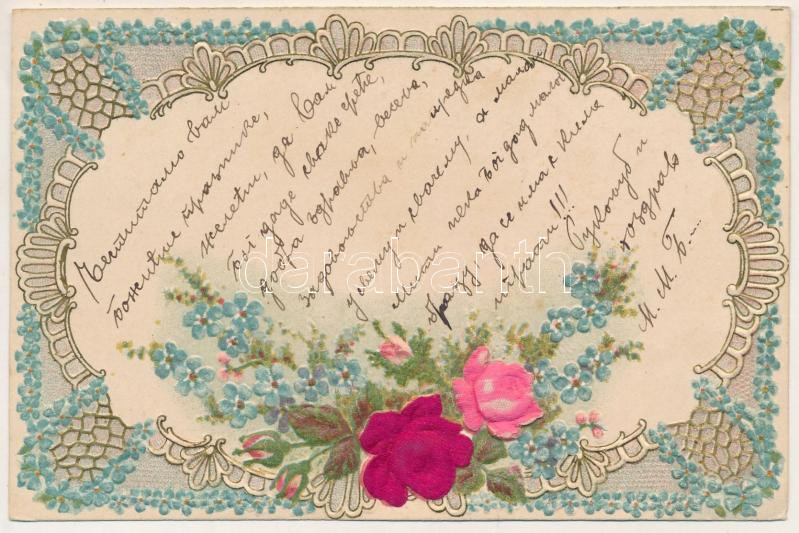 Честитамо вам
божићне празнике,
желећи, да Вам
Бог даде сваке среће,
добра здравља, весеља,
задовољства и напредка
у вашем свачему, а малом
Милан нека Бог дод малог
брацу да се има с киме
играти!!!
Рукољуб и
поздрав
М. М. Б....
darabanth